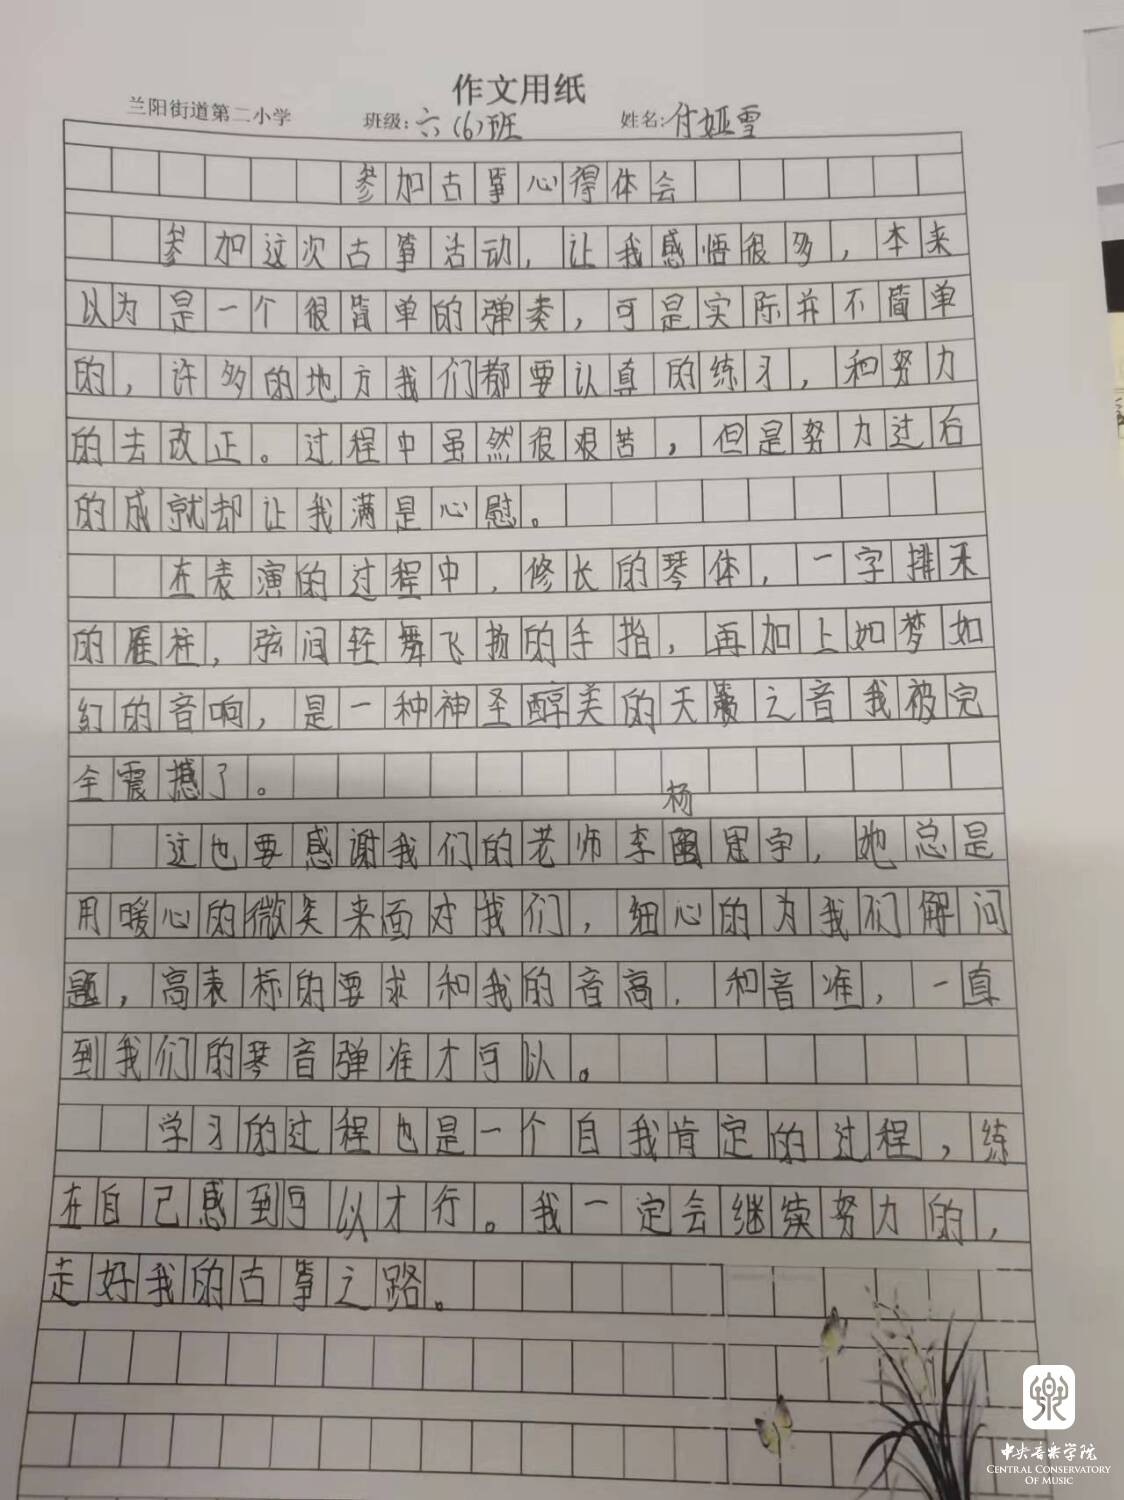 作文用纸
兰阳街道第二小学 班级：六(6)班 姓名：付娅雪
参加古筝心得体会
参加这次古筝活动，让我感悟很多，本来
以为是一个很简单的弹奏，可是实际并不简单
的，许多的地方我们都要认真的练习，和努力
的去改正。过程中虽然很艰苦，但是努力过后
的成就却让我满是心慰。
在表演的过程中，修长的琴体，一字排来
的雁柱，弦间轻舞飞扬的手指，再加上如梦如
幻的音响，是一种神圣醇美的天籁之音我被完
全震撼了。
杨
这也要感谢我们的老师李思宇，她总是
用暖心的微笑来面对我们，细心的为我们解问
题，高表标的要求和我的音高，和音准，一直
到我们的琴音弹准才可以。
学习的过程也是一个自我肯定的过程，练
在自己感到可以才行。我一定会继续努力的，
走好我的古筝之路。
中央音乐学院
CENTRAL CONSERVATORY
OF MUSIC